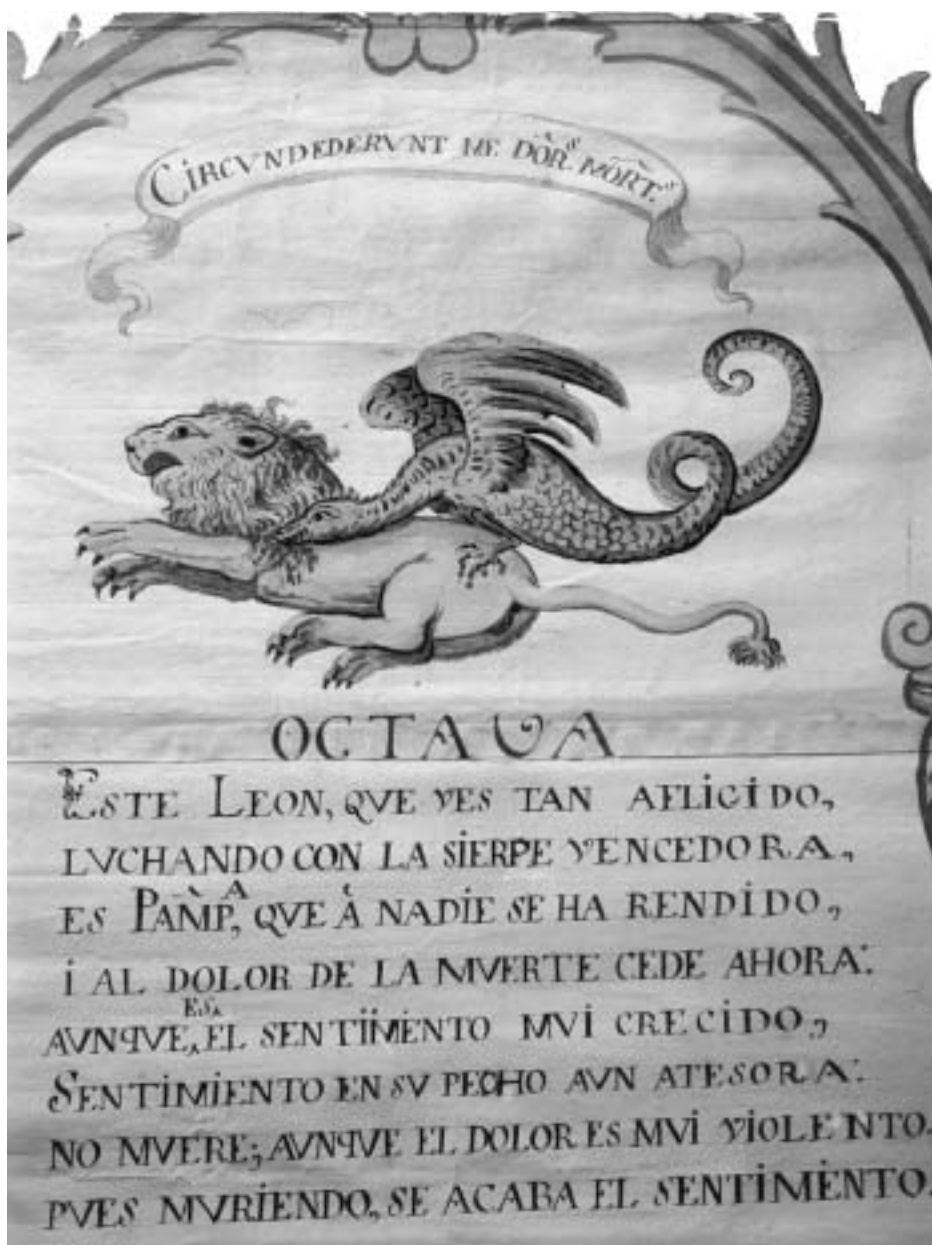 CİRCVNDEDERVNT ME DOR̃S MORT̃S
OCTAUA
ESTE LEON, QVE VES TAN AFLİGİDO,
LVCHANDO CON LA SİERPE VENCEDORA,
ES PAMP̃A, QVE À NADİE SE HA RENDİDO,
İ AL DOLOR DE LA MVERTE CEDE AHORA:
AVNQVE ES EL SENTİMİENTO MVİ CRECİDO,
SENTİMİENTO EN SV PECHO AVN ATESORA:
NO MVERE; AVNQVE EL DOLOR ES MVİ VİOLENTO.
PVES MVRİENDO, SE ACABA EL SENTİMİENTO.